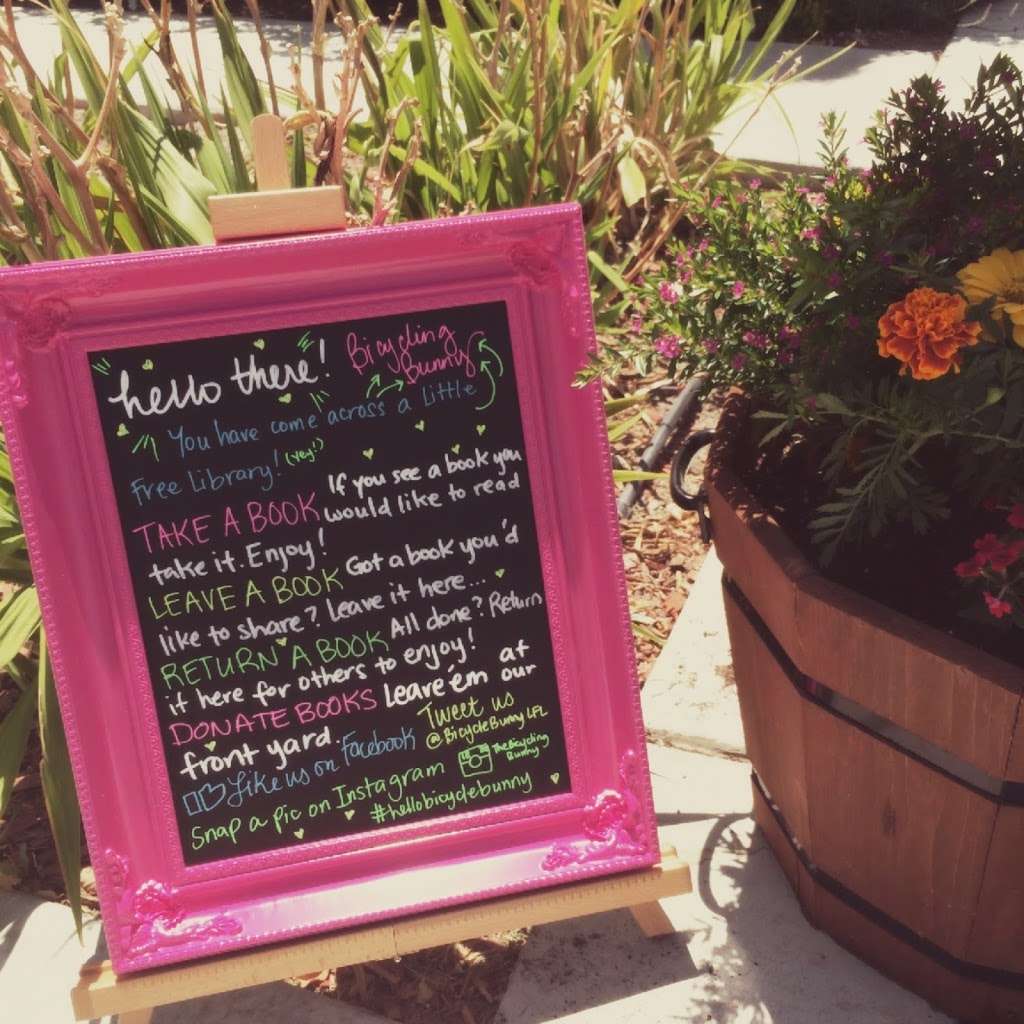 hello there! Bicycling Bunny
You have come across a Little
Free Library! (yey!)
TAKE A BOOK If you see a book you
would like to read
take it. Enjoy!
LEAVE A BOOK Got a book you'd
like to share? Leave it here...
RETURN A BOOK All done? Return
it here for others to enjoy!
DONATE BOOKS Leave 'em at our
front yard.
Tweet us
@BicycleBunnyLFL
Like us on Facebook
Snap a pic on Instagram
The Bicycling
Bunny
#hellobicyclebunny